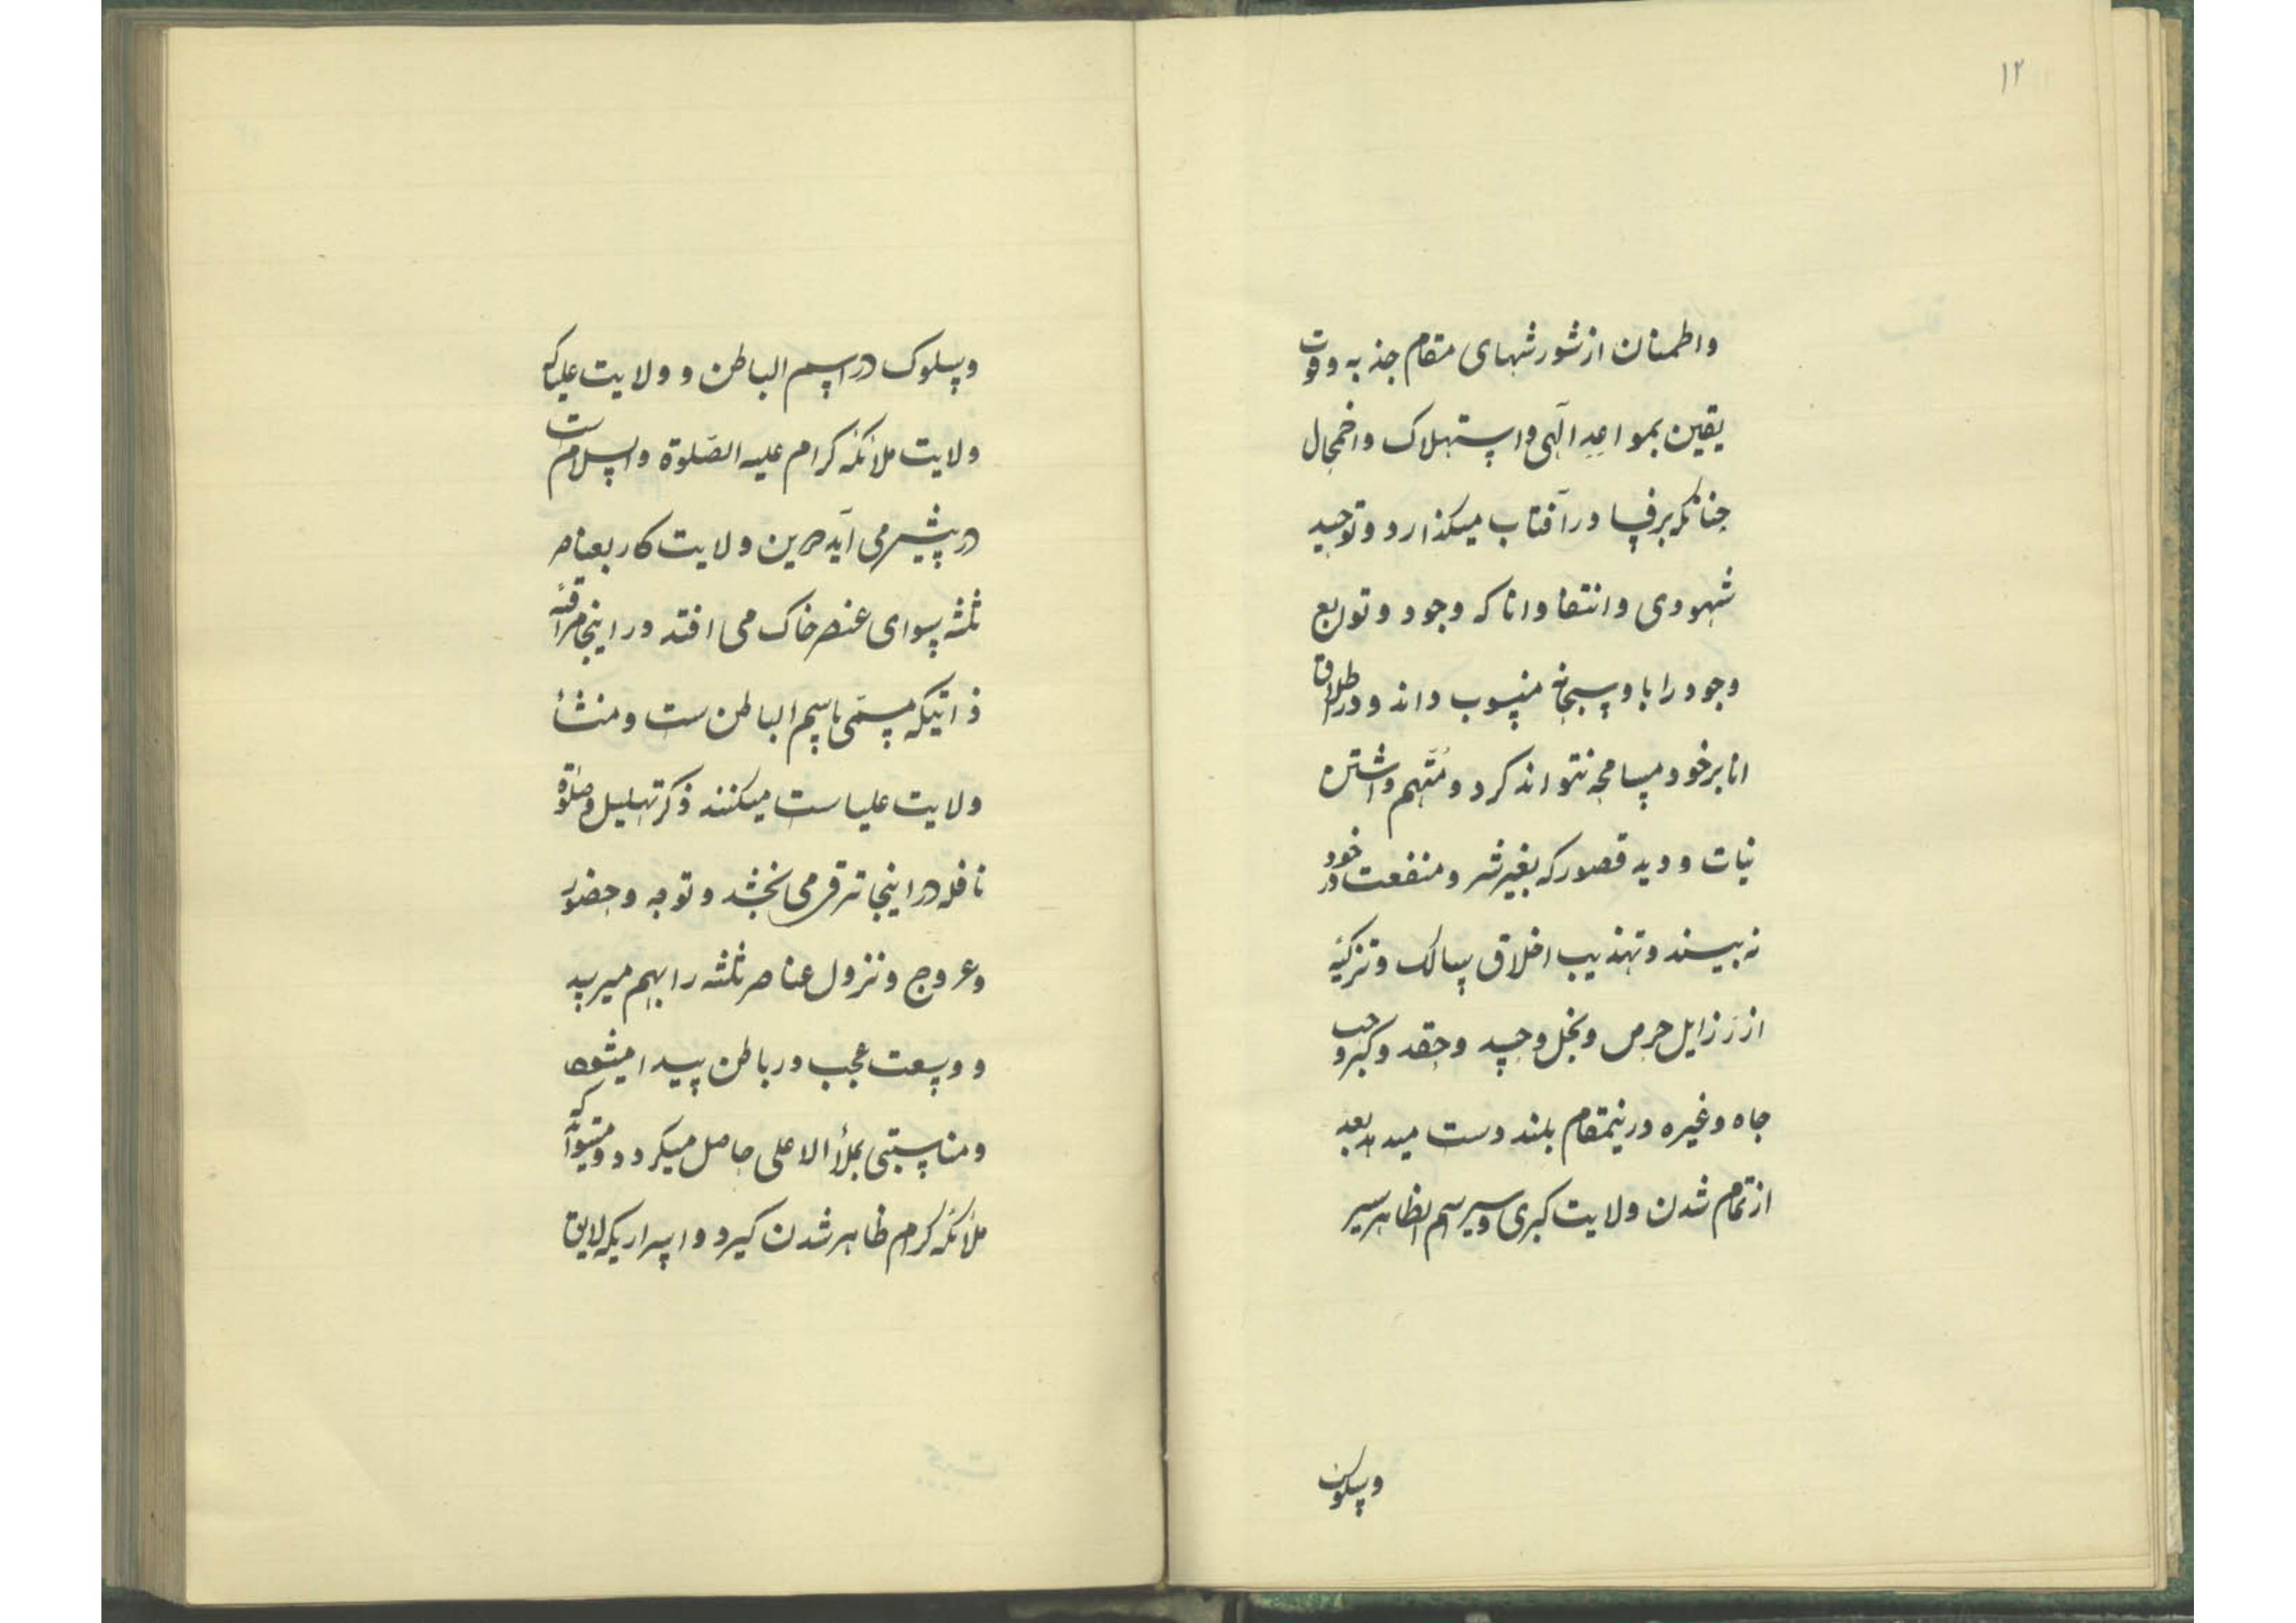 ۱۲
واطمنان از شورشهای مقام جذبه و قوت
یقین بمواعد الٓهی و استهلاک واضمحلال
چنانکه برف در آفتاب میگذارد و توحید
شهودی و انتفاء انا که وجود و توابع
وجود را باو سبحانه منسوب داند و در اطلاق
انا بر خود مسامحه نتواند کرد و متّهم داشتن
نیات و دید قصور که بغیر شر و منقعت در خود
نه بیند و تهذیب اخلاق سالک و تزکیهٔ
از رزایل حرص و بخل و حسد و حقد و کبر و حب
جاه و غیره درینمقام بلند دست میدهد بعد
از تمام شدن ولایت کبری و سیر اسم الظاهر سیر
وسلوک
وسلوک در اسم الباطن و ولایت علیا که
ولایت ملائکه کرام علیه الصّلوة والسلام است
در پیش می آید درین ولایت کار بعناصر
ثلثه سوای عنصر خاک می افتد در اینجا مراقبهٔ
ذاتیکه مسمّی باسم الباطن ست و منشأ
ولایت علیا ست میکنند ذکر تهلیل و صلوٰة
نافله در اینجا ترقی می بخشد و توجه و حضور
و عروج و نزول عناصر ثلثه را بهم میرسد
و وسعت عجب در باطن پیدا میشود
و مناسبتی بملأ الاعلی حاصل میگردد و میتواند که
ملائکه کرام ظاهر شدن گیرد و اسراریکه لایق